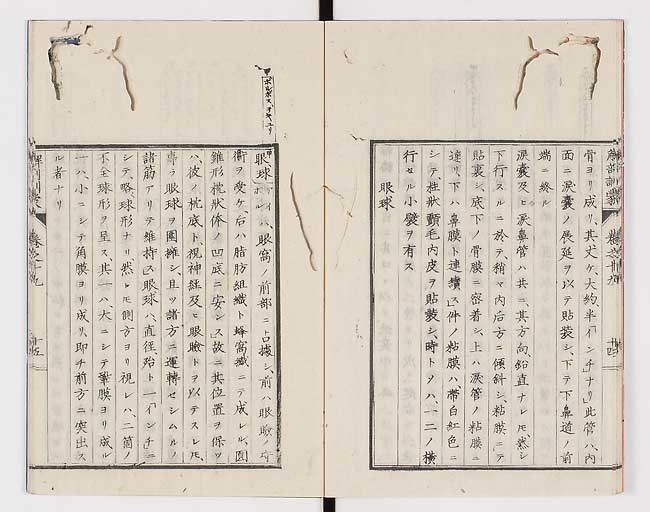 骨ヨリ成リ、其丈ケ、大約、半「インチ」ナリ」此管ハ、内
面ニ涙嚢ノ展延ヲ以テ貼装シ、下テ下鼻道ノ前
端ニ終ル
涙嚢及ヒ涙鼻管ハ共ニ、其方向、鉛直ナレモ然シ
下行スルニ於テ、稍々内后方ニ傾斜シ、粘膜ニテ
貼裏シ、底下ノ骨膜ニ密着シ、上ハ涙管ノ粘膜ニ
連リ、下ハ鼻膜ト連續ス」件ノ粘膜ハ、帯白紅色ニ
シテ、柱狀顫毛内皮ヲ貼装シ、時トヲハ、一二ノ横
行セル小襞ヲ有ス
眼球
十四
ボルボス、ヲキュリ
眼球ハ、眼窩ノ前部ニ占據シ、前ハ眼瞼ノ
衛ヲ受ケ、后ハ脂肪組織ト蜂窩織ニテ成レル、圓
錐形枕狀体ノ凹底ニ安ンス」故ニ其位置ヲ保ツ
ハ、彼ノ枕底ト、視神経及ヒ眼瞼トヲ以テスレモ、
專ラ眼球ヲ囲擁シ、且ツ諸方ニ運轉セシムルノ
諸筋アリテ維持ス」眼球ハ、直径、殆ト一「インチ」ニ
シテ、略球形ナリ然レモ側方ヨリ視レハ、二箇ノ
不全球形ヲ呈ス、其一ハ大ニシテ鞏膜ヨリ成ル
一ハ、小ニシテ角膜ヨリ成リ、即チ前方ニ突出ス
ル者ナリ
十五